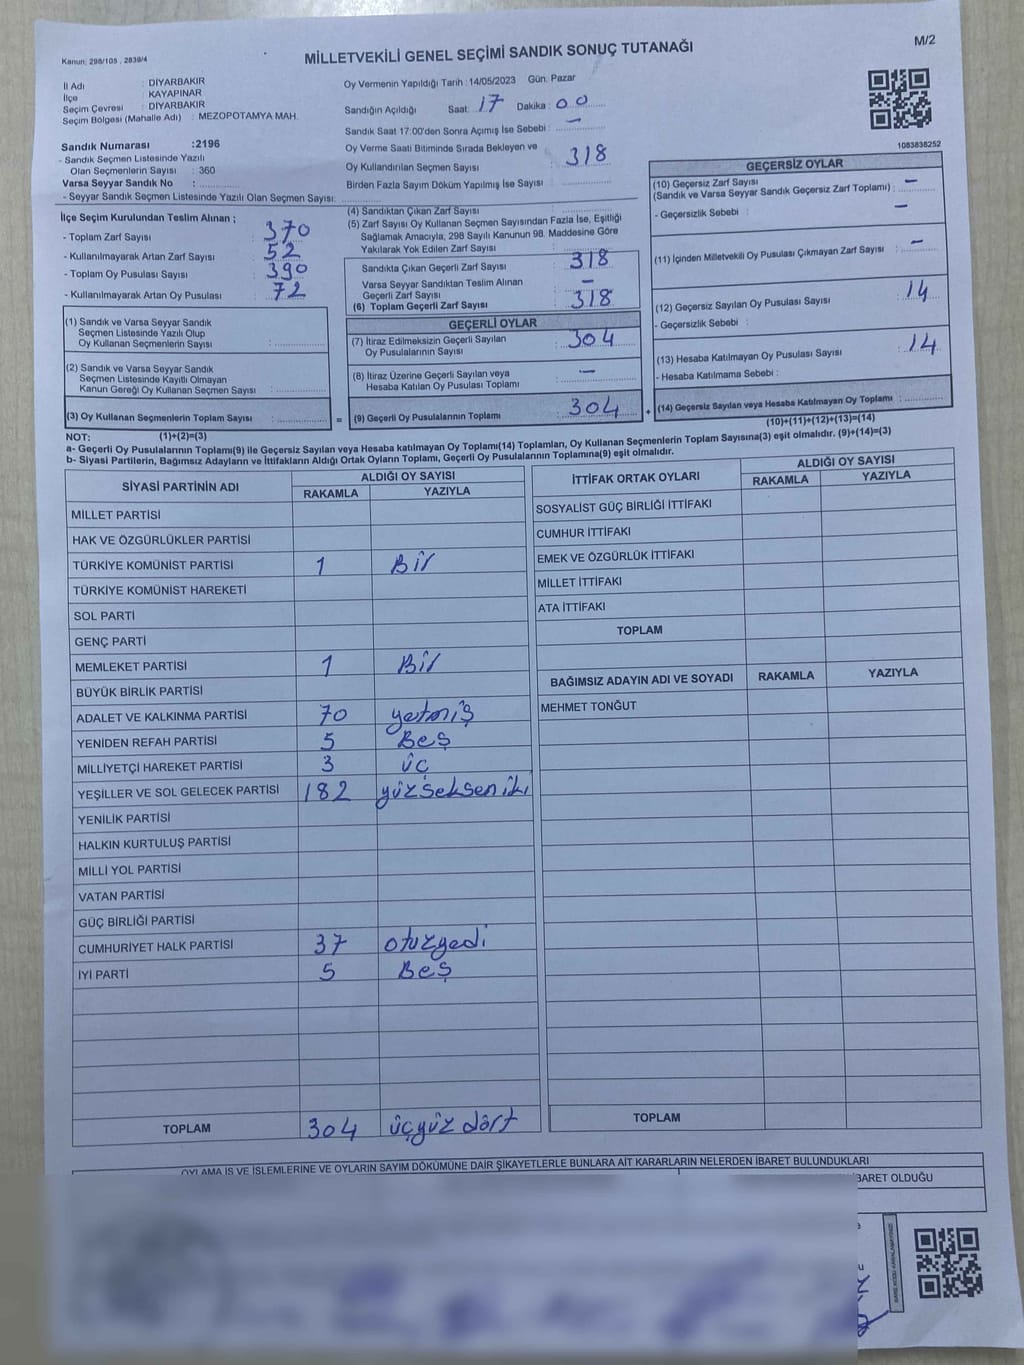 Kanun: 298/105 , 2839/4
MİLLETVEKİLİ GENEL SEÇİMİ SANDIK SONUÇ TUTANAĞI
M/2
İl Adı : DİYARBAKIR
İlçe : KAYAPINAR
Seçim Çevresi : DİYARBAKIR
Seçim Bölgesi (Mahalle Adı) : MEZOPOTAMYA MAH.
Oy Vermenin Yapıldığı Tarih : 14/05/2023 Gün: Pazar
Sandığın Açıldığı Saat: 17 Dakika : 00
Sandık Saat 17:00'den Sonra Açımış İse Sebebi : -
Oy Verme Saati Bitiminde Sırada Bekleyen ve
Oy Kullandırılan Seçmen Sayısı : 318
Birden Fazla Sayım Döküm Yapılmış İse Sayısı :
1083838252
Sandık Numarası :2196
- Sandık Seçmen Listesinde Yazılı
Olan Seçmenlerin Sayısı : 360
Varsa Seyyar Sandık No :
- Seyyar Sandık Seçmen Listesinde Yazılı Olan Seçmen Sayısı:
İlçe Seçim Kurulundan Teslim Alınan ;
- Toplam Zarf Sayısı : 370
- Kullanılmayarak Artan Zarf Sayısı : 52
- Toplam Oy Pusulası Sayısı : 390
- Kullanılmayarak Artan Oy Pusulası : 72
(1) Sandık ve Varsa Seyyar Sandık
Seçmen Listesinde Yazılı Olup
Oy Kullanan Seçmenlerin Sayısı :
(2) Sandık ve Varsa Seyyar Sandık
Seçmen Listesinde Kayıtlı Olmayan
Kanun Gereği Oy Kullanan Seçmen Sayısı :
(3) Oy Kullanan Seçmenlerin Toplam Sayısı :
(1)+(2)=(3)
(4) Sandıktan Çıkan Zarf Sayısı :
(5) Zarf Sayısı Oy Kullanan Seçmen Sayısından Fazla İse, Eşitliği
Sağlamak Amacıyla; 298 Sayılı Kanunun 98. Maddesine Göre
Yakılarak Yok Edilen Zarf Sayısı :
Sandıkta Çıkan Geçerli Zarf Sayısı : 318
Varsa Seyyar Sandıktan Teslim Alınan
Geçerli Zarf Sayısı : -
(6) Toplam Geçerli Zarf Sayısı : 318
GEÇERLİ OYLAR
(7) İtiraz Edilmeksizin Geçerli Sayılan
Oy Pusulalarının Sayısı : 304
(8) İtiraz Üzerine Geçerli Sayılan veya
Hesaba Katılan Oy Pusulası Toplamı : -
= (9) Geçerli Oy Pusulalarının Toplamı : 304 +
GEÇERSİZ OYLAR
(10) Geçersiz Zarf Sayısı
(Sandık ve Varsa Seyyar Sandık Geçersiz Zarf Toplamı) : -
- Geçersizlik Sebebi : -
(11) İçinden Milletvekili Oy Pusulası Çıkmayan Zarf Sayısı : -
(12) Geçersiz Sayılan Oy Pusulası Sayısı : 14
- Geçersizlik Sebebi :
(13) Hesaba Katılmayan Oy Pusulası Sayısı : 14
- Hesaba Katılmama Sebebi :
(14) Geçersiz Sayılan veya Hesaba Katılmayan Oy Toplamı :
(10)+(11)+(12)+(13)=(14)
NOT:
a- Geçerli Oy Pusulalarının Toplamı(9) ile Geçersiz Sayılan veya Hesaba katılmayan Oy Toplamı(14) Toplamları, Oy Kullanan Seçmenlerin Toplam Sayısına(3) eşit olmalıdır. (9)+(14)=(3)
b- Siyasi Partilerin, Bağımsız Adayların ve İttifakların Aldığı Ortak Oyların Toplamı, Geçerli Oy Pusulalarının Toplamına(9) eşit olmalıdır.
SİYASİ PARTİNİN ADI ALDIĞI OY SAYISI
RAKAMLA YAZIYLA
MİLLET PARTİSİ
HAK VE ÖZGÜRLÜKLER PARTİSİ
TÜRKİYE KOMÜNİST PARTİSİ 1 Bir
TÜRKİYE KOMÜNİST HAREKETİ
SOL PARTİ
GENÇ PARTİ
MEMLEKET PARTİSİ 1 Bir
BÜYÜK BİRLİK PARTİSİ
ADALET VE KALKINMA PARTİSİ 70 yetmiş
YENİDEN REFAH PARTİSİ 5 Beş
MİLLİYETÇİ HAREKET PARTİSİ 3 üç
YEŞİLLER VE SOL GELECEK PARTİSİ 182 yüzseksen iki
YENİLİK PARTİSİ
HALKIN KURTULUŞ PARTİSİ
MİLLİ YOL PARTİSİ
VATAN PARTİSİ
GÜÇ BİRLİĞİ PARTİSİ
CUMHURİYET HALK PARTİSİ 37 otuzyedi
İYİ PARTİ 5 Beş
TOPLAM 304 üçyüz dört
İTTİFAK ORTAK OYLARI ALDIĞI OY SAYISI
RAKAMLA YAZIYLA
SOSYALİST GÜÇ BİRLİĞİ İTTİFAKI
CUMHUR İTTİFAKI
EMEK VE ÖZGÜRLÜK İTTİFAKI
MİLLET İTTİFAKI
ATA İTTİFAKI
TOPLAM
BAĞIMSIZ ADAYIN ADI VE SOYADI RAKAMLA YAZIYLA
MEHMET TONĞUT
TOPLAM
OYLAMA İŞ VE İŞLEMLERİNE VE OYLARIN SAYIM DÖKÜMÜNE DAİR ŞİKAYETLERLE BUNLARA AİT KARARLARIN NELERDEN İBARET BULUNDUKLARI
İBARET OLDUĞU